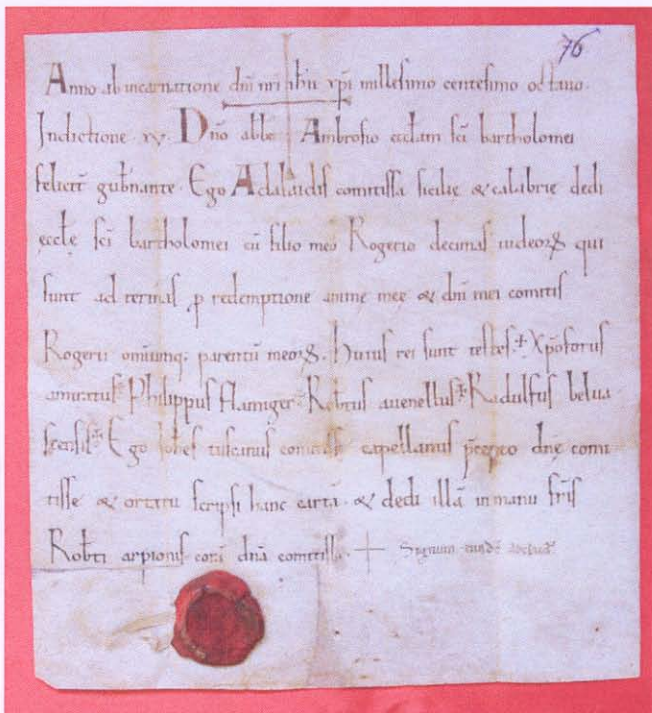 76
Anno ab incarnatione dn̄i nr̄i ih̄u xp̄i millesimo centesimo octauo.
Indictione. xv. Dn̄o abb̄e Ambrosio eccl̄am sc̄i bartholomei
felicit̄ gub̄nante. Ego Adalaidis comitissa sicilie & calabrie dedi
eccl̄e sc̄i bartholomei cū filio meo Rogerio decimas iudeoꝝ qui
sunt ad termas ꝑ redemptione anime mee & dn̄i mei comitis
Rogerii omniumq; parentū meoꝝ. Huius rei sunt testes. Xp̄oforus
amiratus. Philippus flamiger. Rob̄tus auenellus. Radulfus belua
censis. Ego Ioh̄es tuscanus comitisse capellanus p̄cepto dn̄e comi
tisse & ortatu scripsi hanc cartā. & dedi illā in manu fr̄is
Rob̄ti arpionis corā dn̄a comitissa. Signum